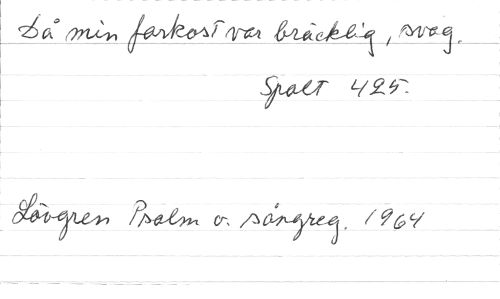 Då min farkost var bräcklig, svag.
Spalt 425.
Lövgren Psalm o. sångreg. 1964